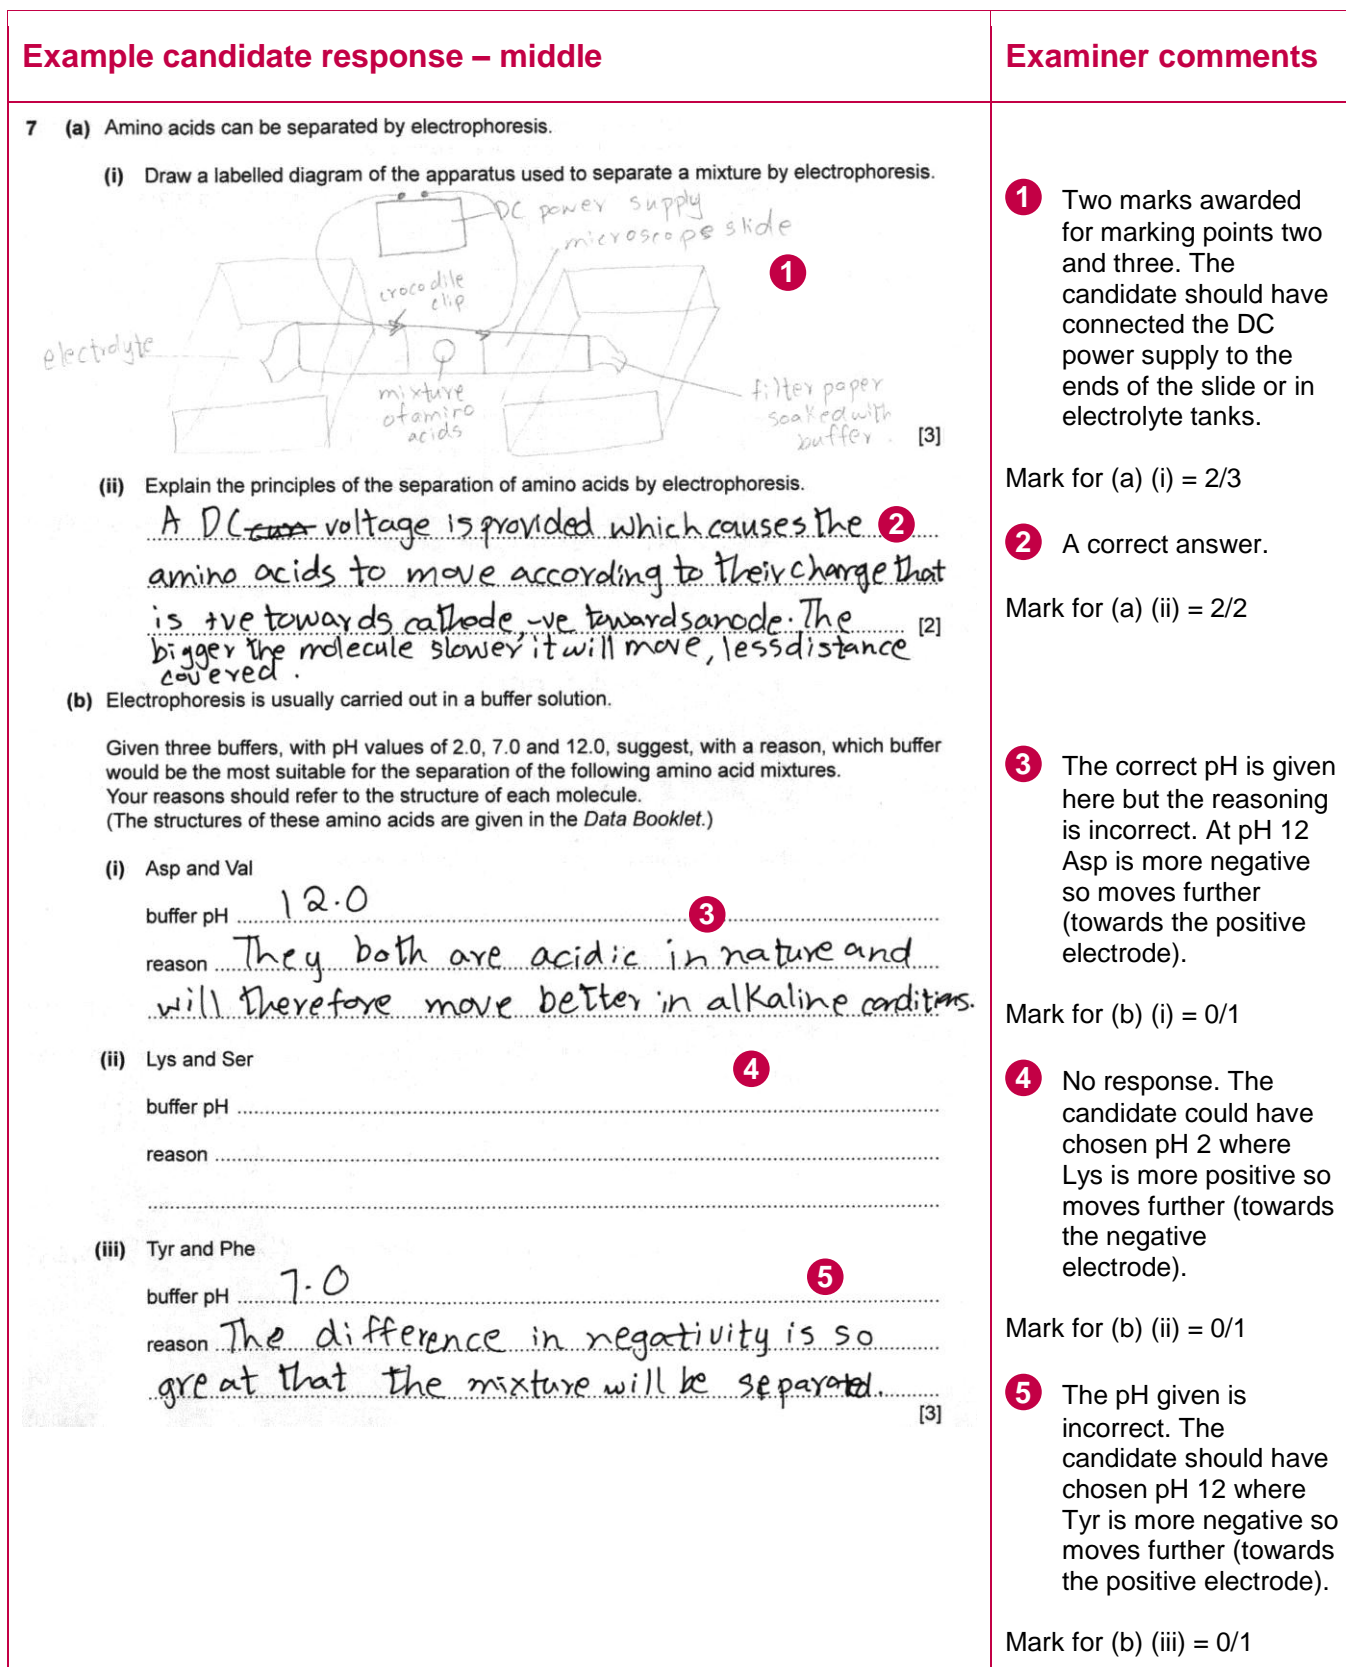 Example candidate response – middle
Examiner comments
7 (a) Amino acids can be separated by electrophoresis.
(i) Draw a labelled diagram of the apparatus used to separate a mixture by electrophoresis.
DC power supply
microscope slide
1
crocodile
clip
electrolyte
mixture
of amino
acids
filter paper
soaked with
buffer.
[3]
(ii) Explain the principles of the separation of amino acids by electrophoresis.
A DC voltage is provided which causes the 2
amino acids to move according to their charge that
is +ve towards cathode, -ve towards anode. The [2]
bigger the molecule slower it will move, less distance
covered.
(b) Electrophoresis is usually carried out in a buffer solution.
Given three buffers, with pH values of 2.0, 7.0 and 12.0, suggest, with a reason, which buffer
would be the most suitable for the separation of the following amino acid mixtures.
Your reasons should refer to the structure of each molecule.
(The structures of these amino acids are given in the Data Booklet.)
(i) Asp and Val
buffer pH 12.0 3
reason They both are acidic in nature and
will therefore move better in alkaline conditions.
(ii) Lys and Ser
4
buffer pH
reason
(iii) Tyr and Phe
buffer pH 7.0 5
reason The difference in negativity is so
great that the mixture will be separated.
[3]
1 Two marks awarded
for marking points two
and three. The
candidate should have
connected the DC
power supply to the
ends of the slide or in
electrolyte tanks.
Mark for (a) (i) = 2/3
2 A correct answer.
Mark for (a) (ii) = 2/2
3 The correct pH is given
here but the reasoning
is incorrect. At pH 12
Asp is more negative
so moves further
(towards the positive
electrode).
Mark for (b) (i) = 0/1
4 No response. The
candidate could have
chosen pH 2 where
Lys is more positive so
moves further (towards
the negative
electrode).
Mark for (b) (ii) = 0/1
5 The pH given is
incorrect. The
candidate should have
chosen pH 12 where
Tyr is more negative so
moves further (towards
the positive electrode).
Mark for (b) (iii) = 0/1